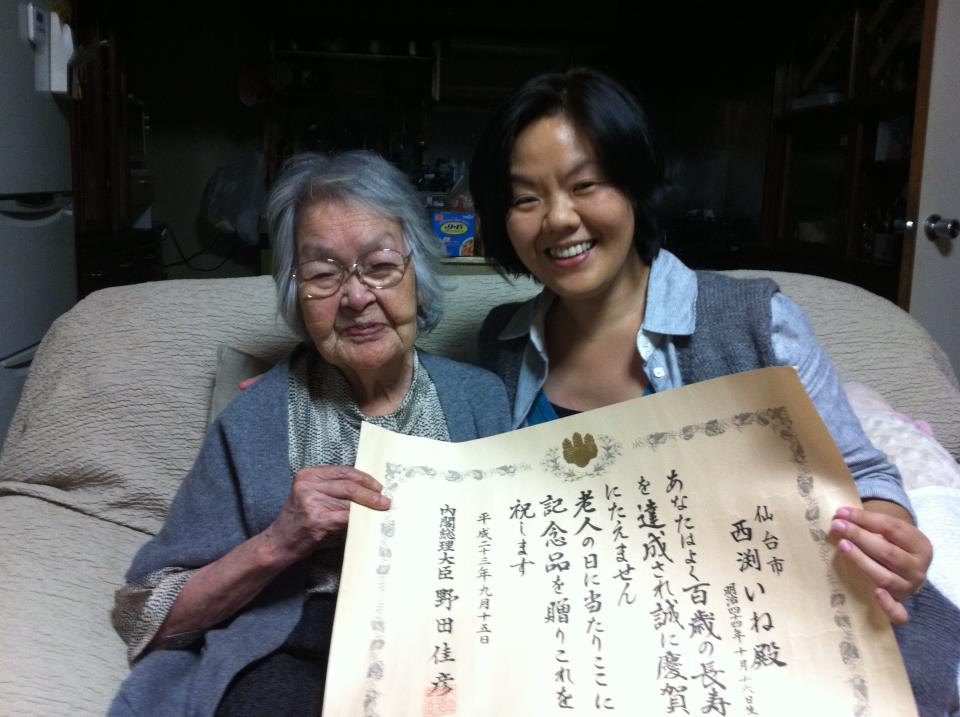 仙台市
西渕いね殿
明治四十四年十月十六日生
あなたはよく百歳の長寿
を達成され誠に慶賀
にたえません
老人の日に当たりここに
記念品を贈りこれを
祝します
平成二十三年九月十五日
内閣総理大臣 野田佳彦